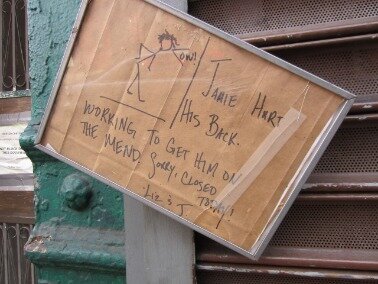 OW!
JAMIE HURT
HIS BACK.
WORKING TO GET HIM ON
THE MEND, SORRY, CLOSED
TODAY!
LIZ & J